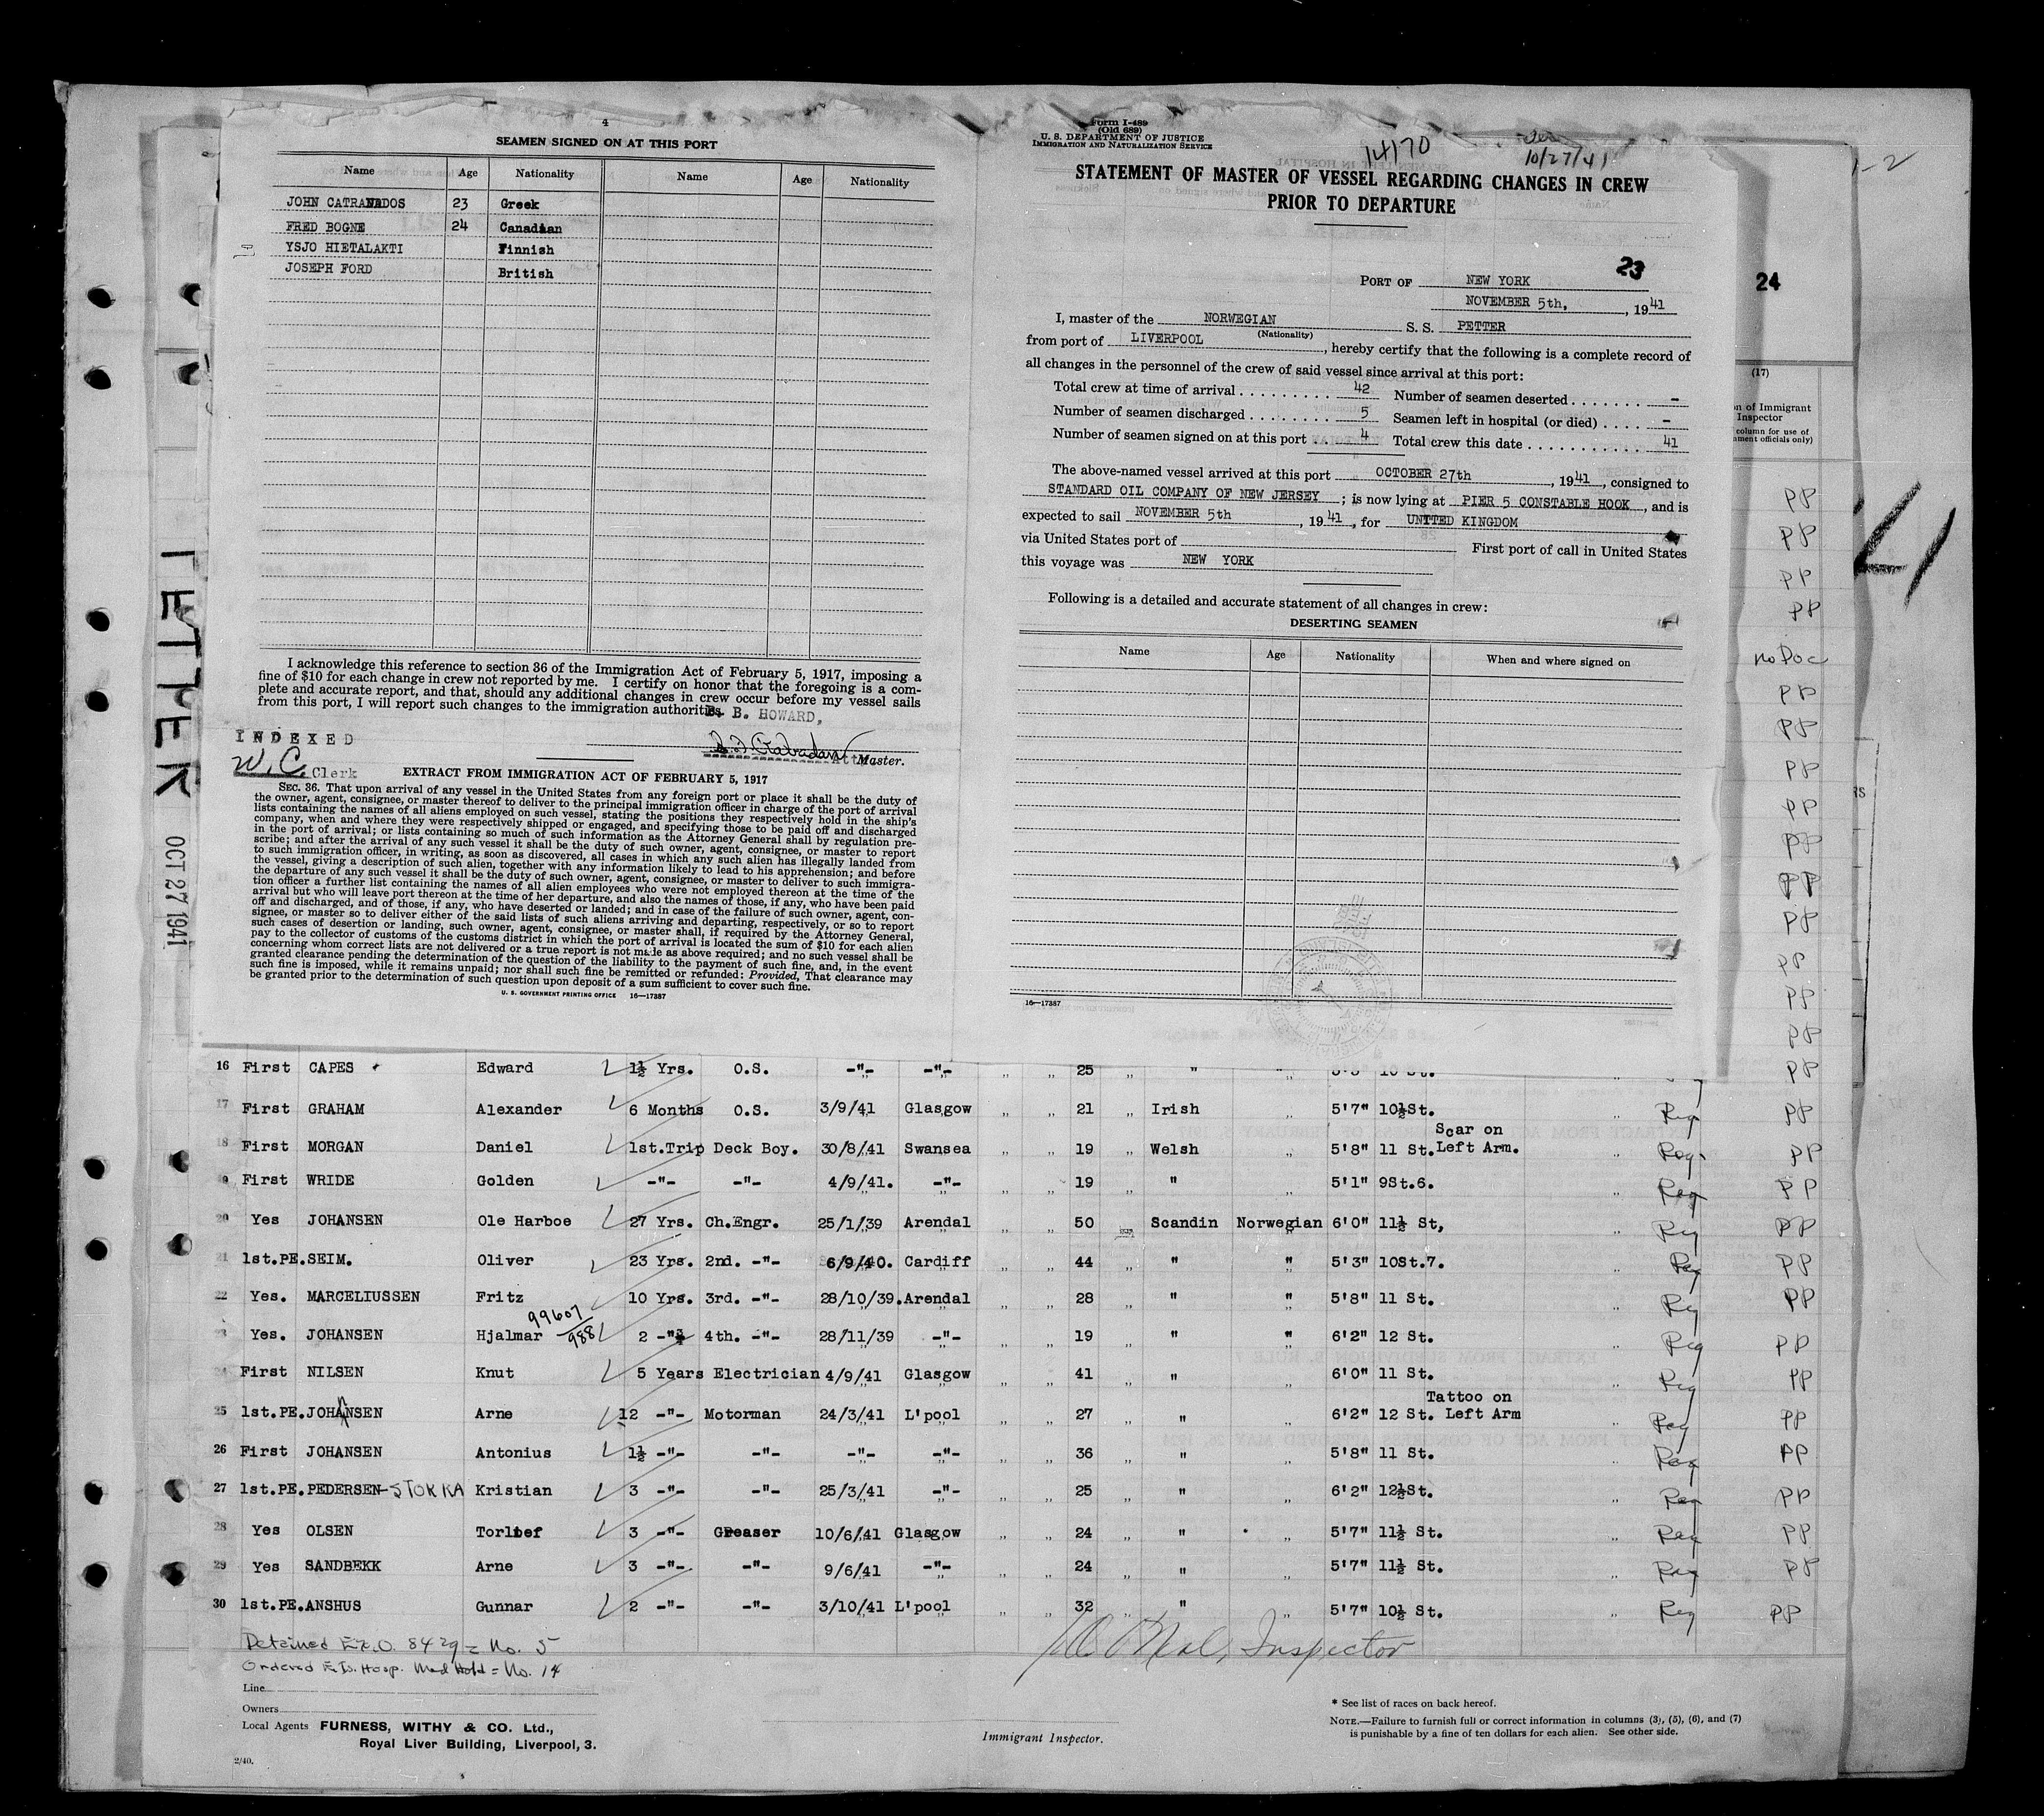 4
SEAMEN SIGNED ON AT THIS PORT
Name Age Nationality Name Age Nationality
JOHN CATRANADOS 23 Greek
FRED BOGNE 24 Canadian
YSJO HIETALAKTI Finnish
JOSEPH FORD British
I acknowledge this reference to section 36 of the Immigration Act of February 5, 1917, imposing a
fine of $10 for each change in crew not reported by me. I certify on honor that the foregoing is a com-
plete and accurate report, and that, should any additional changes in crew occur before my vessel sails
from this port, I will report such changes to the immigration authorities.
B. HOWARD,
INDEXED
W.C. Clerk
Atty Master.
EXTRACT FROM IMMIGRATION ACT OF FEBRUARY 5, 1917
SEC. 36. That upon arrival of any vessel in the United States from any foreign port or place it shall be the duty of
the owner, agent, consignee, or master thereof to deliver to the principal immigration officer in charge of the port of arrival
lists containing the names of all aliens employed on such vessel, stating the positions they respectively hold in the ship's
company, when and where they were respectively shipped or engaged, and specifying those to be paid off and discharged
in the port of arrival; or lists containing so much of such information as the Attorney General shall by regulation pre-
scribe; and after the arrival of any such vessel it shall be the duty of such owner, agent, consignee, or master to report
to such immigration officer, in writing, as soon as discovered, all cases in which any such alien has illegally landed from
the vessel, giving a description of such alien, together with any information likely to lead to his apprehension; and before
the departure of any such vessel it shall be the duty of such owner, agent, consignee, or master to deliver to such immigra-
tion officer a further list containing the names of all alien employees who were not employed thereon at the time of the
arrival but who will leave port thereon at the time of her departure, and also the names of those, if any, who have been paid
off and discharged, and of those, if any, who have deserted or landed; and in case of the failure of such owner, agent, con-
signee, or master so to deliver either of the said lists of such aliens arriving and departing, respectively, or so to report
such cases of desertion or landing, such owner, agent, consignee, or master shall, if required by the Attorney General,
pay to the collector of customs of the customs district in which the port of arrival is located the sum of $10 for each alien
concerning whom correct lists are not delivered or a true report is not made as above required; and no such vessel shall be
granted clearance pending the determination of the question of the liability to the payment of such fine, and, in the event
such fine is imposed, while it remains unpaid; nor shall such fine be remitted or refunded: Provided, That clearance may
be granted prior to the determination of such question upon deposit of a sum sufficient to cover such fine.
U. S. GOVERNMENT PRINTING OFFICE 16—17387
Form I-489
(Old 689)
U. S. DEPARTMENT OF JUSTICE
IMMIGRATION AND NATURALIZATION SERVICE
14170
10/27/41
STATEMENT OF MASTER OF VESSEL REGARDING CHANGES IN CREW
PRIOR TO DEPARTURE
23
PORT OF NEW YORK
NOVEMBER 5th, , 1941
I, master of the NORWEGIAN S. S. PETTER
(Nationality)
from port of LIVERPOOL , hereby certify that the following is a complete record of
all changes in the personnel of the crew of said vessel since arrival at this port:
Total crew at time of arrival 42 Number of seamen deserted -
Number of seamen discharged 5 Seamen left in hospital (or died) -
Number of seamen signed on at this port 4 Total crew this date 41
The above-named vessel arrived at this port OCTOBER 27th , 1941, consigned to
STANDARD OIL COMPANY OF NEW JERSEY ; is now lying at PIER 5 CONSTABLE HOOK, and is
expected to sail NOVEMBER 5th , 1941, for UNITED KINGDOM
via United States port of First port of call in United States
this voyage was NEW YORK
Following is a detailed and accurate statement of all changes in crew:
DESERTING SEAMEN
Name Age Nationality When and where signed on
16—17387
PETTER OCT 27 1941
1-2
24
(17)
n of Immigrant
Inspector
column for use of
ment officials only)
4
PP
PP
PP
PP
no Doc
PP
PP
PP
PP
PP
PP
PP
PP
PP
PP
16 First CAPES Edward 1½ Yrs. O.S. -"- -"- " " 25 " " 10 St. PP
17 First GRAHAM Alexander 6 Months O.S. 3/9/41 Glasgow " " 21 " Irish " 5'7" 10½St. Reg PP
18 First MORGAN Daniel 1st.Trip Deck Boy. 30/8/41 Swansea " " 19 " Welsh " 5'8" 11 St. Scar on Left Arm. Reg PP
19 First WRIDE Golden -"- -"- 4/9/41. -"- " " 19 " " " 5'1" 9St.6. Reg PP
20 Yes JOHANSEN Ole Harboe 27 Yrs. Ch.Engr. 25/1/39 Arendal " " 50 " Scandin Norwegian 6'0" 11½ St, Reg PP
21 1st.PE. SEIM. Oliver 23 Yrs. 2nd. -"- 6/9/40. Cardiff " " 44 " " " 5'3" 10St.7. Reg PP
22 Yes. MARCELIUSSEN Fritz 10 Yrs. 3rd. -"- 28/10/39. Arendal " " 28 " " " 5'8" 11 St. Reg PP
99607/988
23 Yes. JOHANSEN Hjalmar 2 -"- 4th. -"- 28/11/39 -"- " " 19 " " " 6'2" 12 St. Reg PP
24 First NILSEN Knut 5 Years Electrician 4/9/41 Glasgow " " 41 " " " 6'0" 11 St. Reg PP
25 1st.PE. JOHANSEN Arne 12 -"- Motorman 24/3/41 L'pool " " 27 " " " 6'2" 12 St. Tattoo on Left Arm Reg PP
26 First JOHANSEN Antonius 1½ -"- -"- -"- -"- " " 36 " " " 5'8" 11 St. Reg PP
27 1st.PE. PEDERSEN-STOKKA Kristian 3 -"- -"- 25/3/41 -"- " " 25 " " " 6'2" 12½St. Reg PP
28 Yes OLSEN Torlief 3 -"- Greaser 10/6/41 Glasgow " " 24 " " " 5'7" 11½ St. Reg PP
29 Yes SANDBEKK Arne 3 -"- -"- 9/6/41 -"- " " 24 " " " 5'7" 11½ St. Reg PP
30 1st.PE. ANSHUS Gunnar 2 -"- -"- 3/10/41 L'pool " " 32 " " " 5'7" 10½ St. Reg PP
Detained Ex.O. 8429 = No. 5
Ordered E.Is. Hosp. Med Hold = No. 14
Inspector
Line
Owners
Local Agents FURNESS, WITHY & CO. Ltd.,
Royal Liver Building, Liverpool, 3.
2/40.
Immigrant Inspector.
* See list of races on back hereof.
NOTE.—Failure to furnish full or correct information in columns (3), (5), (6), and (7)
is punishable by a fine of ten dollars for each alien. See other side.